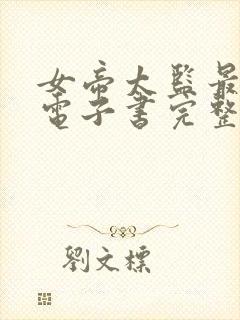 女帝大監最
電子書完整
劉文標